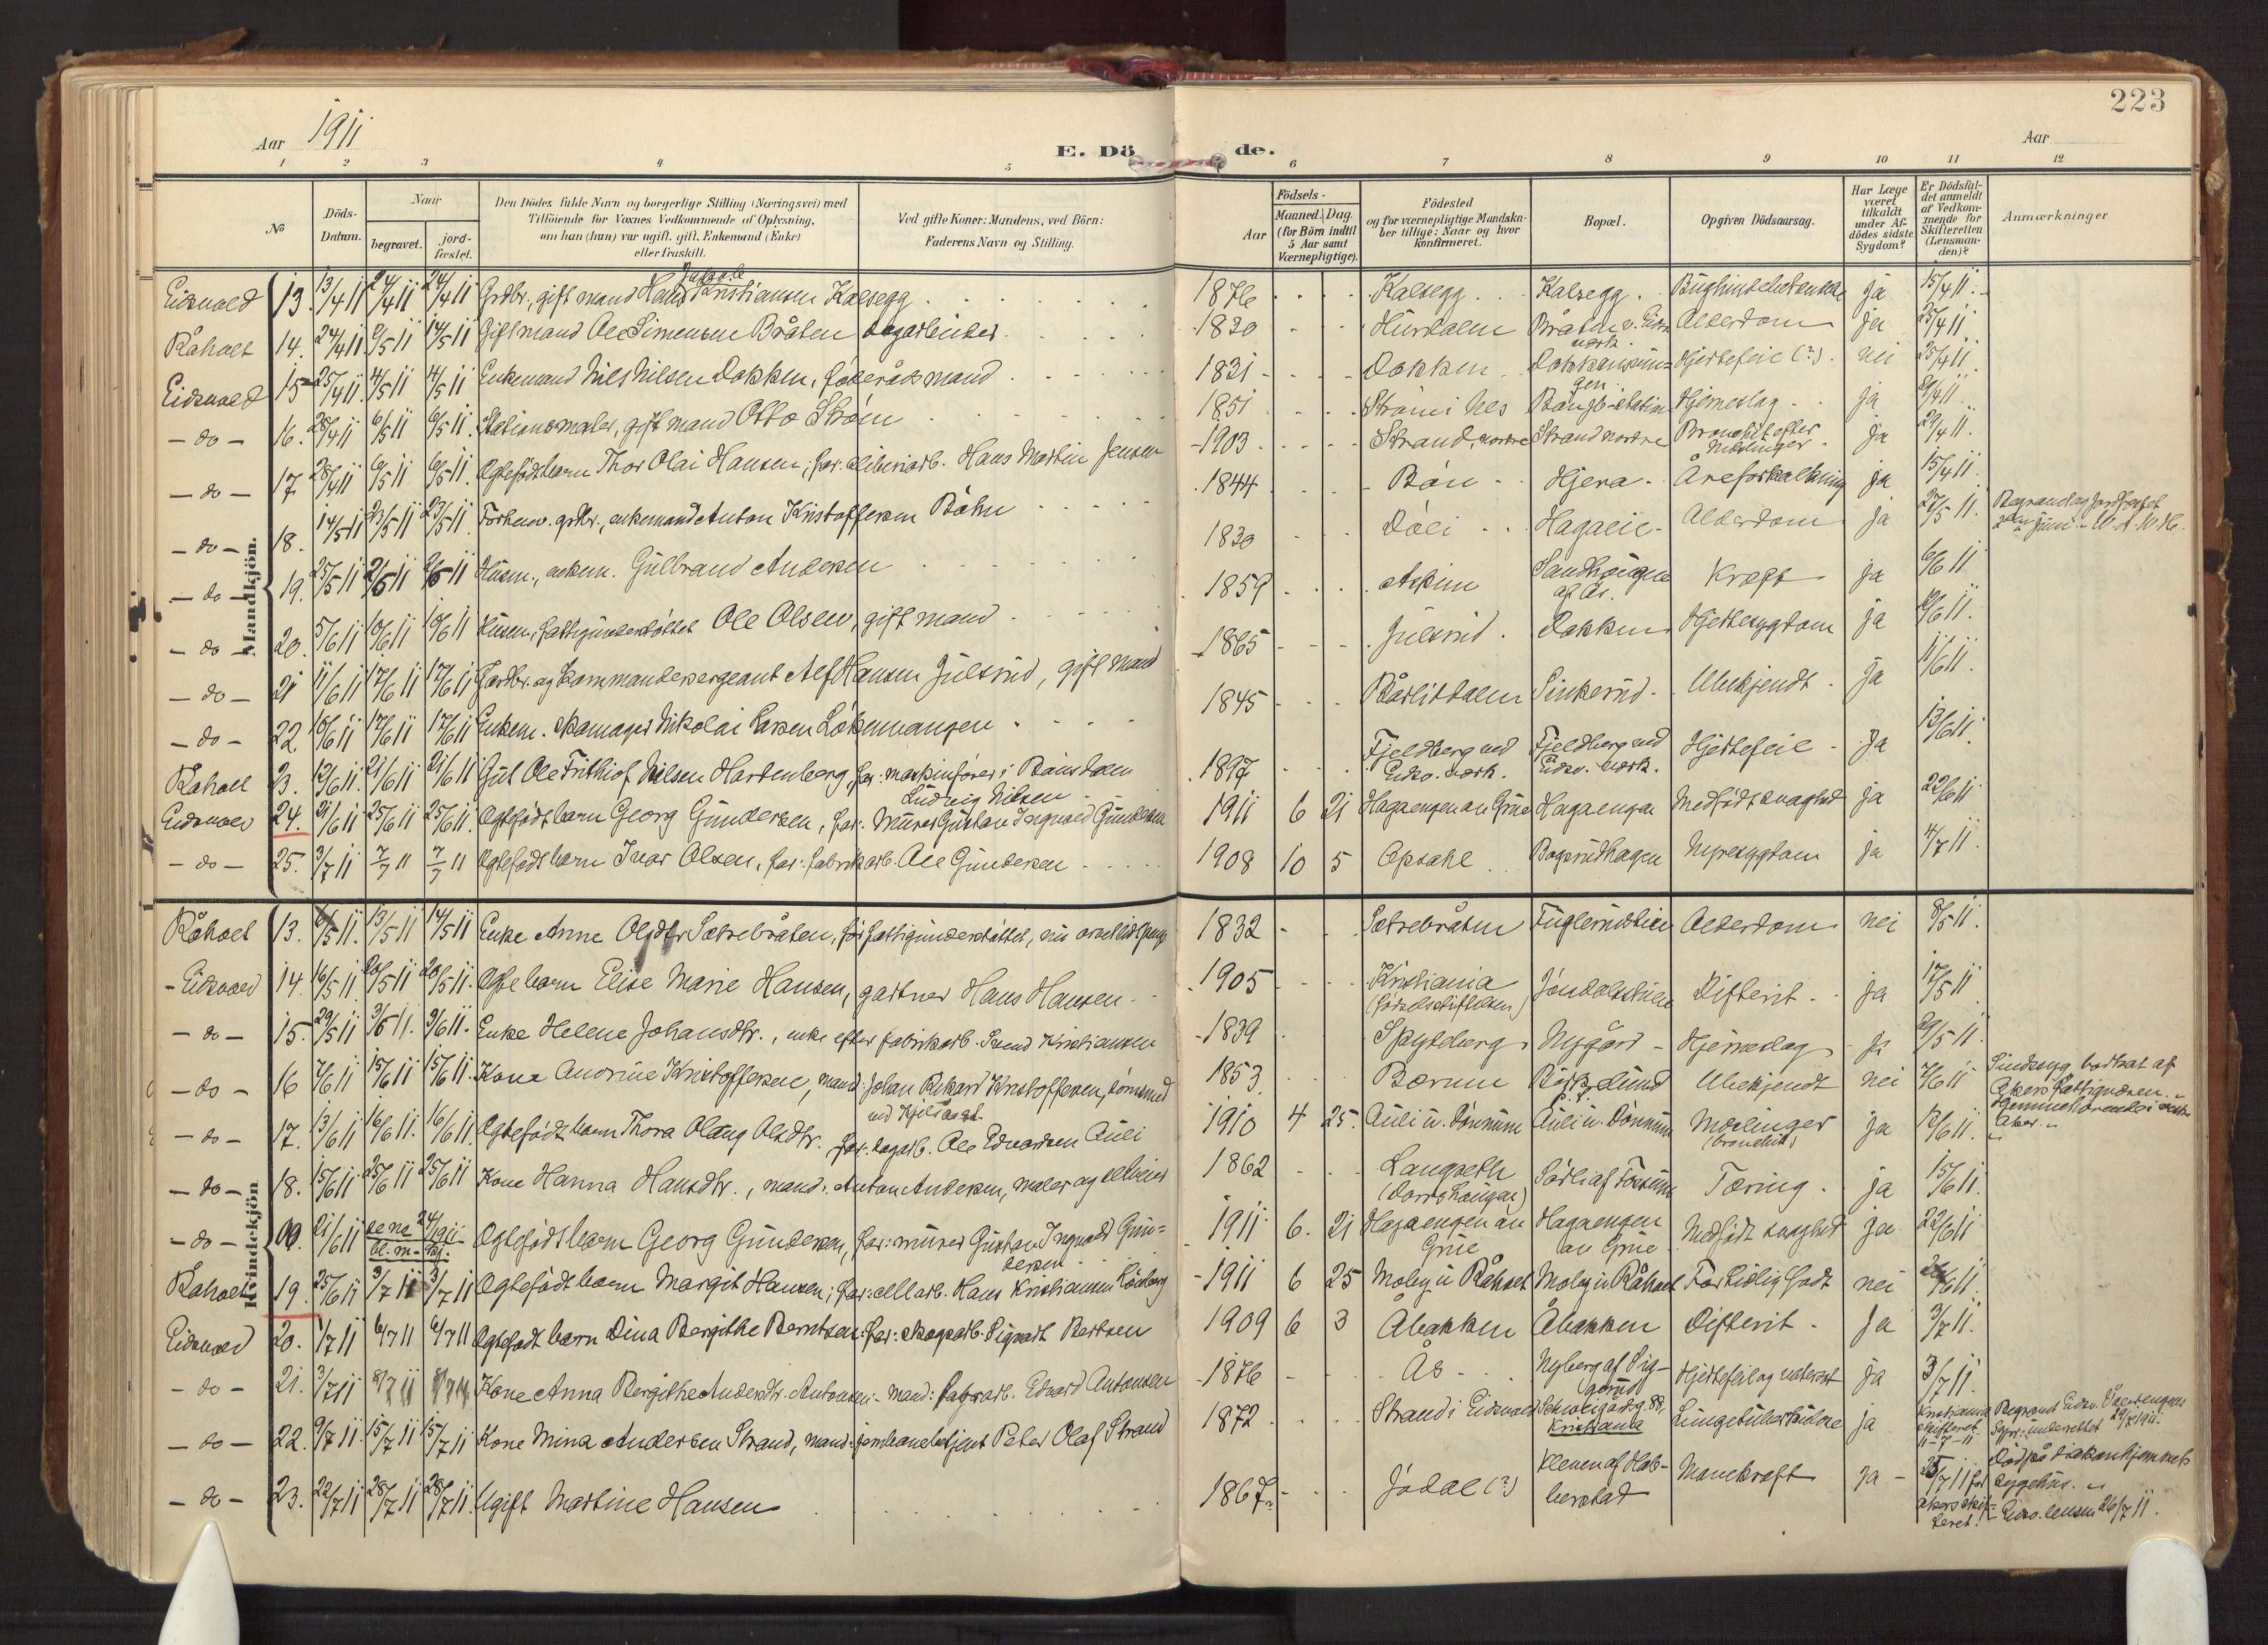 223
Aar 1911
E. Döde.
Aar
1 2 3 4 5 6 7 8 9 10 11 12
№
Döds-Datum.
Naar
begravet. jordfæstet.
Den Dödes fulde Navn og borgerlige Stilling (Næringsvei) med
Tilföiende for Voxnes Vedkommende af Oplysning,
om han (hun) var ugift, gift, Enkemand (Enke)
eller fraskilt.
Ved gifte Koner: Mandens, ved Börn:
Faderens Navn og Stilling.
Födsels-
Aar
Maaned. Dag.
(for Börn indtil
5 Aar samt
Værnepligtige).
Födested
og for værnepligtige Mandskaber tillige: Naar og hvor
konfirmeret.
Bopæl.
Opgiven Dödsaarsag.
Har Læge
været
tilkaldt
under Afdödes sidste
Sygdom?
Er Dödsfaldet anmeldt
af Vedkommende for
Skifteretten
(Lensmanden)?
Anmærkninger
Mandkjön.
Eidsvold 13. 13/4 11 24/4 11 24/4 11 Grdbr., gift mand Hans Kristiansen Kalsegg 1876 Kalsegg Kalsegg ja 15/4 11
Råholt 14. 24/4 11 2/5 11 14/5 11 Gift mand Ole Simensen Bråten dagarbeider 1830 Hurdalen Bråten v. Eidsv. værk Alderdom ja 25/4 11
Eidsvold 15 25/4 11 4/5 11 4/5 11 Enkemand Nils Nilsen Dokken, föderådsmand 1831 Dokken Hjertefeil (?) nei 25/4 11
- do - 16. 28/4 11 6/5 11 6/5 11 Stationsmester, gift mand Otto Strøm 1851 Strøm i Nes Hjerneslag ja 29/4 11
- do - 17 28/4 11 6/5 11 6/5 11 Ægtefödt barn Thor Olai Hansen, far: Hans Martin Jensen 1903 Strand, nordre Strand nordre Bronchit efter Mæslinger ja 29/4 11
- do - 18. 14/5 11 23/5 11 23/5 11 Forhenv. grdbr., enkemand Anton Kristoffersen Böhn 1844 Bön Hjera Åreforkalkning ja 15/4 11
- do - 19. 25/5 11 2/6 11 2/6 11 Husm., enkem. Gulbrand Andersen 1830 Döli Alderdom ja 27/5 11 Begravet og jordfæstet
- do - 20. 5/6 11 10/6 11 10/6 11 Husm., fattigunderstöttet Ole Olsen, gift mand 1859 Askim Kræft ja 6/6 11
- do - 21 11/6 11 17/6 11 17/6 11 Gardbr. og kommandersergeant Alf Hansen Julsrud, gift mand 1865 Julsrud Dokken Hjertesygdom ja
- do - 22. 10/6 11 17/6 11 17/6 11 Enkem. skomager Nikolai Larsen Lökenvangen 1845 Bårlitdalen Sinkerud Ubekjendt ja 11/6 11
Råholt 23. 12/6 11 21/6 11 21/6 11 Gut Ole Frithjof Nilsen Hardenberg, far: maskinförer i Bönsdalen Ludvig Nilsen 1897 Fjeldberg ved Eidsv. værk. Fjeldberg ved Eidsv. værk. Hjertefeil ja 13/6 11
Eidsvold 24. 21/6 11 25/6 11 25/6 11 Ægtefödt barn Georg Gundersen, far: Murer Gustav Ingvald Gundersen 1911 6 21 Hagaengen av Grue Hagaengen Medfödt svaghed ja 22/6 11
- do - 25. 3/7 11 7/7 11 7/7 11 Ægtefödt barn Ivar Olsen, far: fabrikarb. Ole Gundersen 1908 10 5 Opsahl Bagerudhagen Nyresygdom ja 4/7 11
Kvindekjön
Råholt 13. 6/5 11 13/5 11 14/5 11 Enke Anne Olsdtr Sætrebråten, för fattigunderstöttet 1832 Sætrebråten Alderdom nei 8/5 11
- Eidsvold 14. 16/5 11 20/5 11 20/5 11 Ægte barn Elise Marie Hansen, gartner Hans Hansen 1905 Kristiania (Födselsstiftelsen) Difterit ja 17/5 11
- do - 15. 29/5 11 3/6 11 3/6 11 Enke Helene Johansdtr., enke efter fabrikarb. Svend Kristiansen 1839 Spydeberg Nygård Hjerneslag ja 29/5 11
- do - 16 7/6 11 15/6 11 15/6 11 Kone Andrine Kristoffersen, mand: Johan Rikard Kristoffersen, tömmermd 1853 Bærum Ubekjendt nei 7/6 11 Sindssyg, bortsat af Akers fattigvæsen.
- do - 17. 13/6 11 16/6 11 16/6 11 Ægtefödt barn Thora Olaug Olsdtr. far: dagarb. Ole Edvardsen Auli 1910 4 25 Auli u. Dönnum Auli u. Dönnum Mæslinger (bronchit) ja
- do - 18. 15/6 11 25/6 11 25/6 11 Kone Hanna Hansdtr., mand: Anton Andersen, maler og 1862 Langseth Tæring ja 15/6 11
- do - 21/6 11 24/6 1911 Ægtefödt barn Georg Gundersen, far: murer Gustav Ingvald Gundersen 1911 6. 21 Hagaengen av Grue Hagaengen av Grue Medfödt svaghed ja 22/6 11
Råholt 19. 25/6 11 3/7 11 3/7 11 Ægtefödt barn Margit Hansen; far: Hans Kristiansen 1911 6 25 Moby u Råholt Moby u. Råholt For tidlig födt nei
Eidsvold 20. 1/7 11 6/7 11 6/7 11 Ægtefödt barn Dina Bergithe Berntsen. far: skogsarb. Sigvart Berntsen 1909 6 3 Åbakken Åbakken Difterit ja 3/7 11
- do - 21. 3/7 11 8/7 11 8/7 11 Kone Anna Bergithe Andersdtr. Antonsen - mand: fabrikarb. Edvard Antonsen 1876 Ås Nyberg af Hjertefeil og vatersot ja 3/7 11
- do - 22. 9/7 11 15/7 11 15/7 11 Kone Mina Andersen Strand, mand: jernbanebetjent Peter Olaf Strand 1872 Strand i Eidsvold Schweigårdsg. 88, Kristiania Lungetuberkulose ja Kristiania skifteret 11-7-11
- do - 23. 22/7 11 28/7 11 28/7 11 Ugift Martine Hansen 1867 Jödal (?) Mavekræft ja - 25/7 11 for Akers skifteret. Död på Diakonhjemmets sygehus. - Eidsv. lensm 26/7 11.